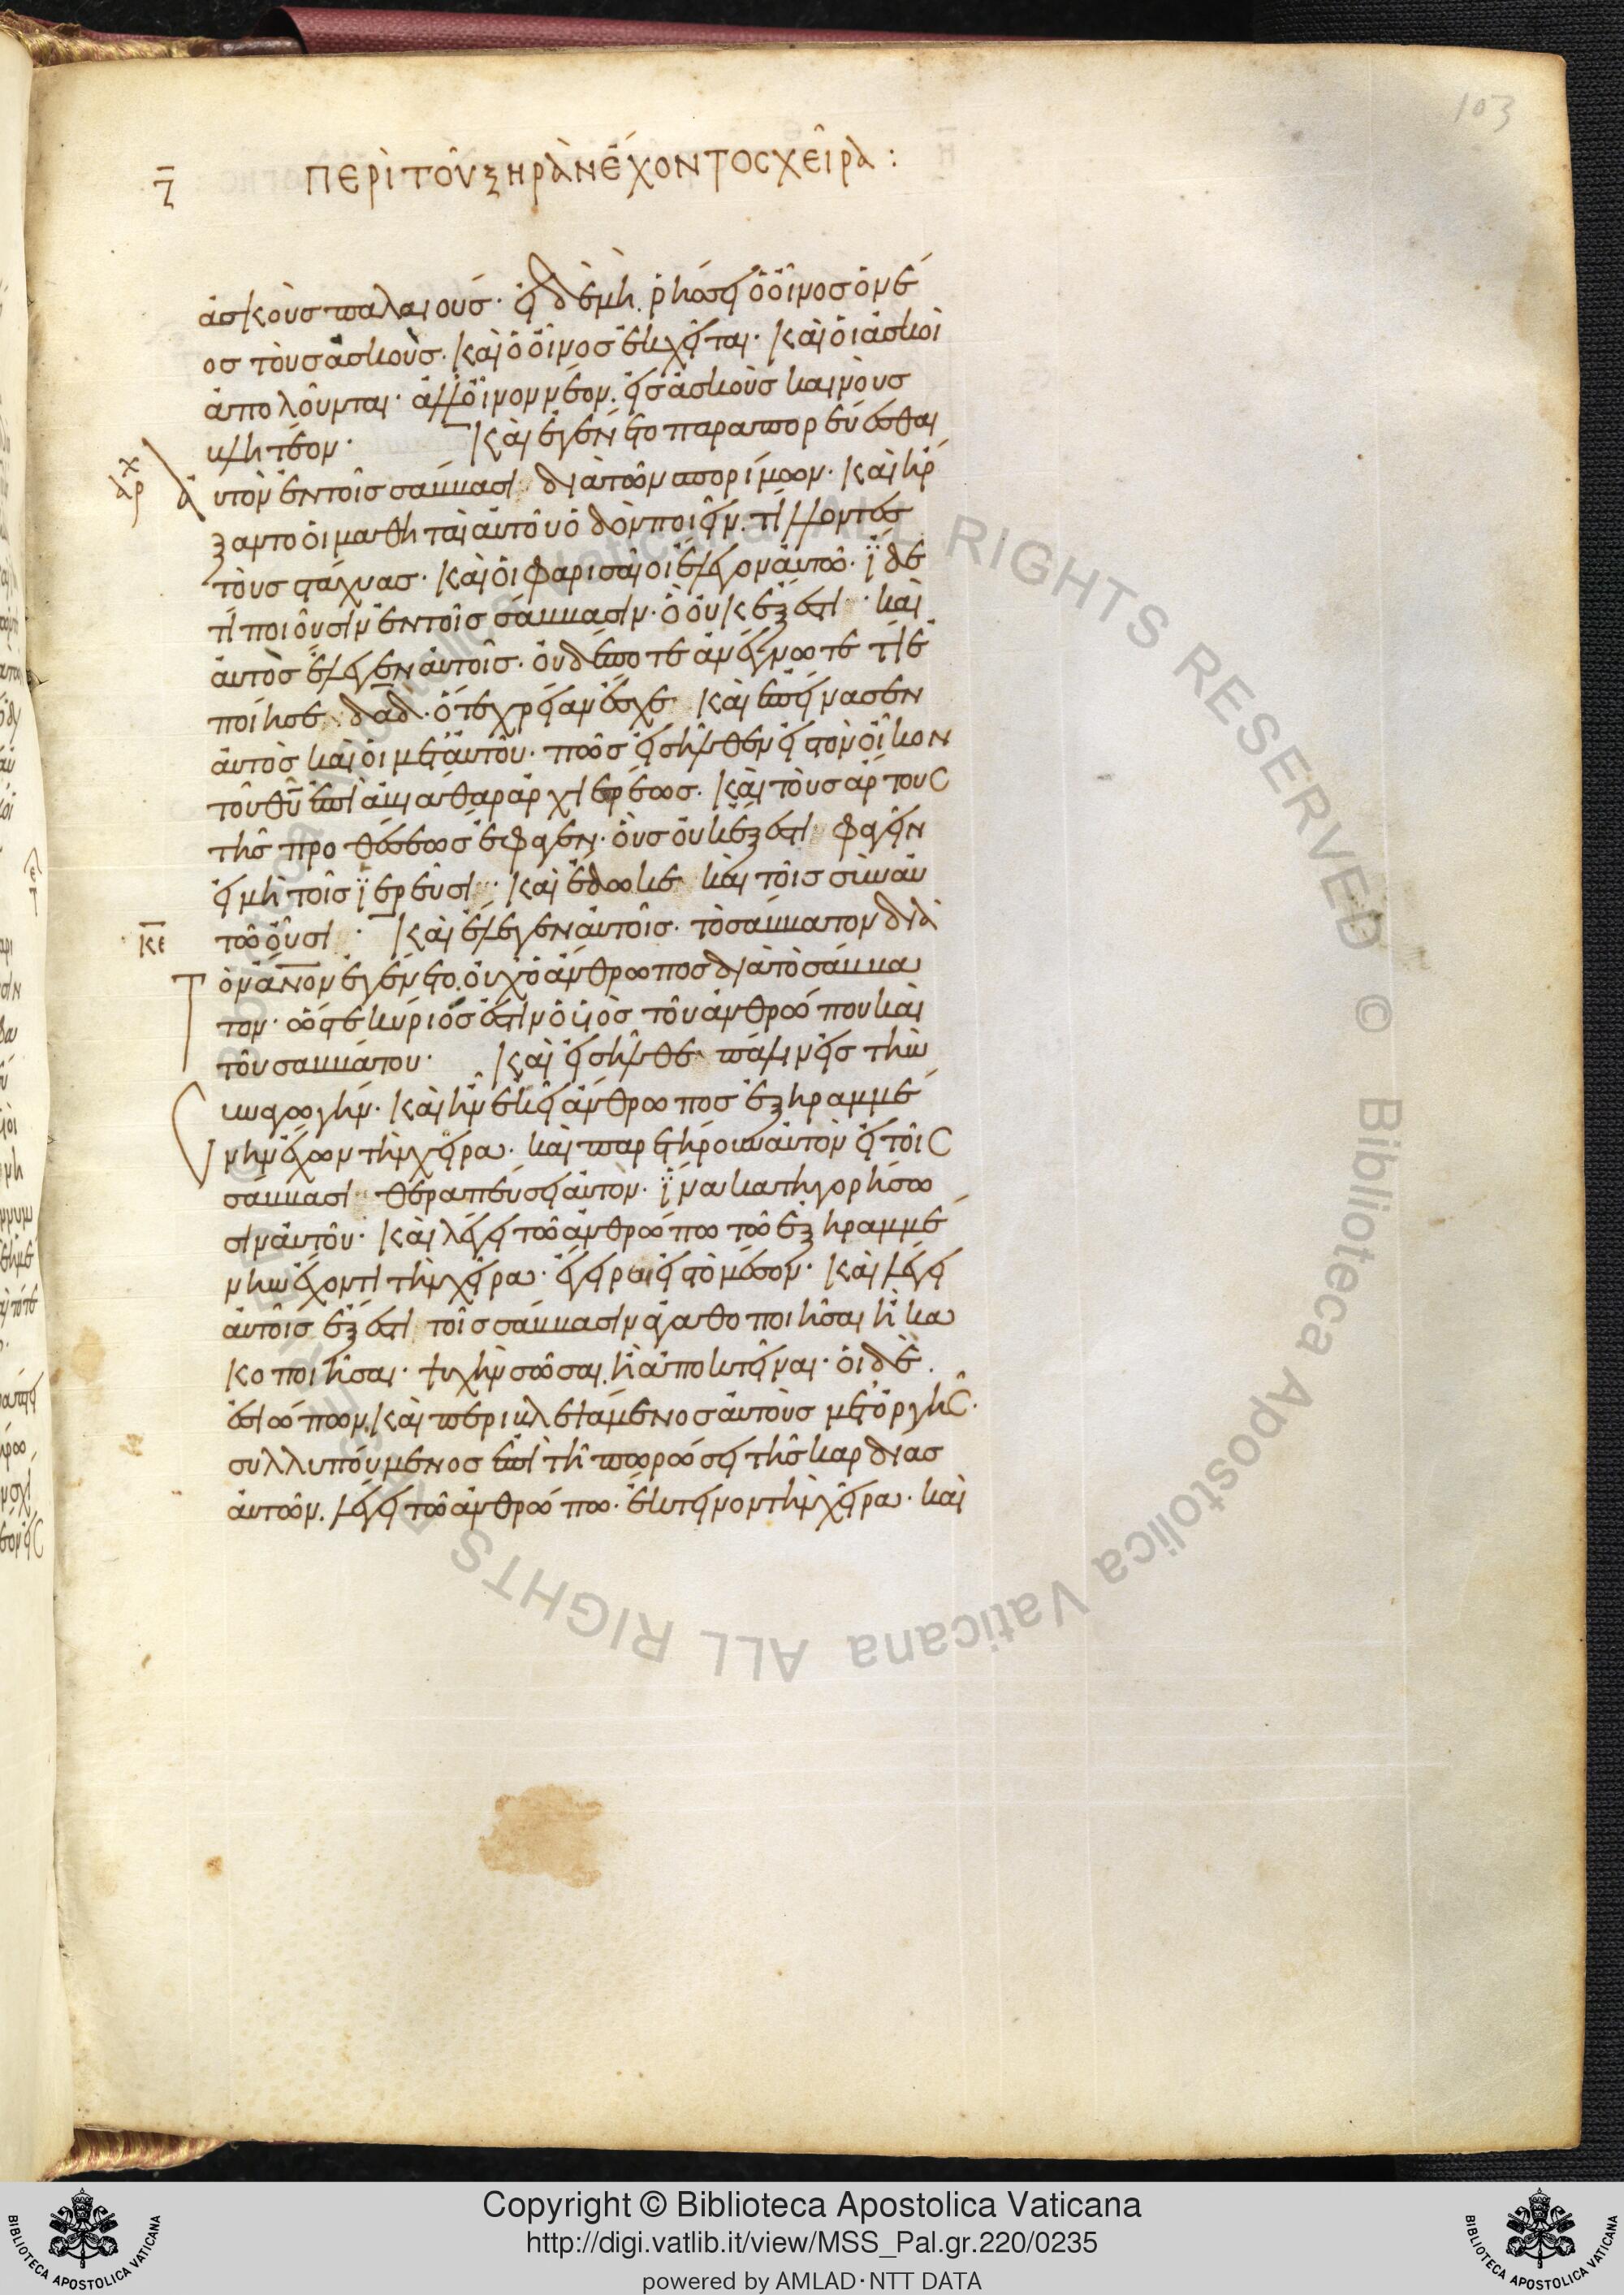 103
ζ ΠΕΡῚ ΤΟΥ͂ ΞΗΡᾺΝ ἘΧΟΝΤΟΣ ΧΕΙ͂ΡΑ :
ἀσκοὺς παλαιούς· εἰ δὲ μὴ ῥήσσει ὁ οἶνος ὁ νέ
ος τοὺς ἀσκούς· καὶ ὁ οἶνος ἐκχεῖται· καὶ οἱ ἀσκοὶ
ἀπολοῦνται· ἀλλ οἶνον νέον εἰς ἀσκοὺς καινοὺς
βλητέον· Καὶ ἐγένετο παραπορεύεσθαι
αὐτὸν ἐν τοῖς σάββασι διὰ τῶν σπορίμων· καὶ ἤρ
ξαντο οἱ μαθηταὶ αὐτοῦ ὁδὸν ποιεῖν τίλλοντες
τοὺς στάχυας· καὶ οἱ φαρισαῖοι ἔλεγον αὐτῷ· ἴδε
τί ποιοῦσιν ἐν τοῖς σάββασιν· ὃ οὐκ ἔξεστι· καὶ
αὐτὸς ἔλεγεν αὐτοῖς· οὐδέποτε ἀνέγνωτε τί ἐ
ποίησε δαδ· ὅτε χρείαν ἔσχε καὶ ἐπείνασεν
αὐτὸς καὶ οἱ μετ αὐτοῦ· πῶς εἰσῆλθεν εἰς τὸν οἶκον
τοῦ θυ ἐπὶ ἀβιάθαρ ἀρχιερέως· καὶ τοὺς ἄρτους
τῆς προθέσεως ἔφαγεν· οὓς οὐκ ἔξεστι φαγεῖν
εἰ μὴ τοῖς ἱερεῦσι· καὶ ἔδωκε καὶ τοῖς σὺν αὐ
κε τῷ οὖσι· Καὶ ἔλεγεν αὐτοῖς· τὸ σάββατον διὰ
τὸν ανον ἐγένετο· οὐχ ὁ ἄνθρωπος διὰ τὸ σάββα
τον· ὥστε κύριός ἐστιν ὁ υἱὸς τοῦ ἀνθρώπου καὶ
τοῦ σαββάτου· Καὶ εἰσῆλθε πάλιν εἰς τὴν
συναγωγήν· καὶ ἦν ἐκεῖ ἄνθρωπος ἐξηραμμέ
νην ἔχων τὴν χεῖρα· καὶ παρετήρουν αὐτὸν εἰ τοῖς
σάββασι θεραπεύσει αὐτόν· ἵνα κατηγορήσω
σιν αὐτοῦ· καὶ λέγει τῷ ἀνθρώπῳ τῷ ἐξηραμμέ
νην ἔχοντι τὴν χεῖρα· ἔγειραι εἰς τὸ μέσον· καὶ λέγει
αὐτοῖς ἔξεστι τοῖς σάββασιν ἀγαθοποιῆσαι ἢ κα
κοποιῆσαι· ψυχὴν σῶσαι ἢ ἀποκτεῖναι· οἱ δὲ
ἐσιώπων· καὶ περιβλεψάμενος αὐτοὺς μετ ὀργῆς·
συλλυπούμενος ἐπὶ τῇ πωρώσει τῆς καρδίας
αὐτῶν· λέγει τῷ ἀνθρώπῳ· ἔκτεινον τὴν χεῖρα· καὶ
© Biblioteca Apostolica Vaticana ALL RIGHTS RESERVED
Copyright © Biblioteca Apostolica Vaticana
http://digi.vatlib.it/view/MSS_Pal.gr.220/0235
powered by AMLAD·NTT DATA
BIBLIOTECA APOSTOLICA VATICANA
BIBLIOTECA APOSTOLICA VATICANA